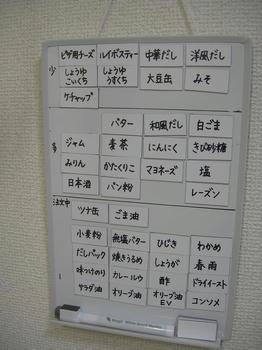 少
ピザ用チーズ ルイボスティー 中華だし 洋風だし
しょうゆこいくち しょうゆうすくち 大豆缶 みそ
ケチャップ
多
バター 和風だし 白ごま
ジャム 麦茶 にんにく きび砂糖
みりん かたくりこ マヨネーズ 塩
日本酒 パン粉 レーズン
注文中
ツナ缶 ごま油
小麦粉 無塩バター ひじき わかめ
だしパック 焼きうるめ しょうが 春雨
味つけのり カレールウ 酢 ドライイースト
サラダ油 オリーブ油 オリーブ油EV コンソメ